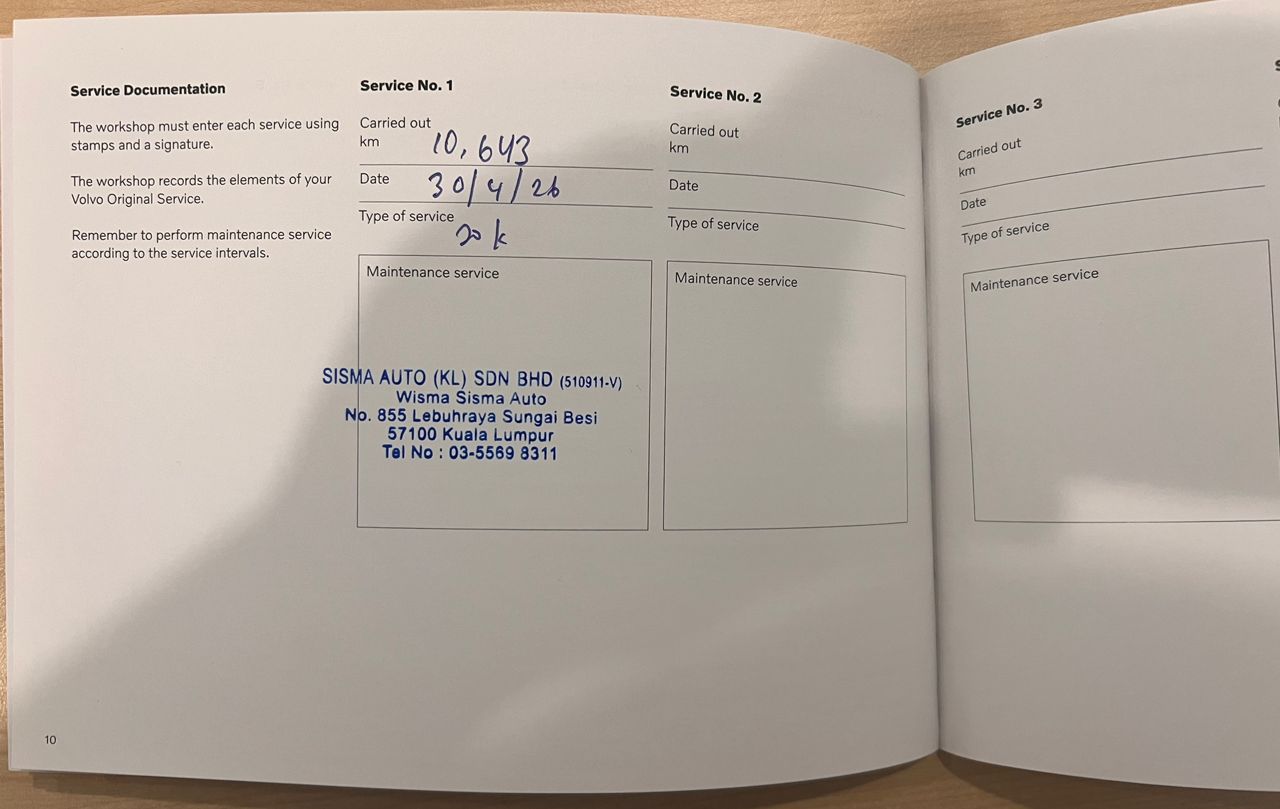 Service Documentation
The workshop must enter each service using
stamps and a signature.
The workshop records the elements of your
Volvo Original Service.
Remember to perform maintenance service
according to the service intervals.
Service No. 1
Carried out
km 10,643
Date 30/4/26
Type of service
20k
Maintenance service
SISMA AUTO (KL) SDN BHD (510911-V)
Wisma Sisma Auto
No. 855 Lebuhraya Sungai Besi
57100 Kuala Lumpur
Tel No : 03-5569 8311
Service No. 2
Carried out
km
Date
Type of service
Maintenance service
10
Service No. 3
Carried out
km
Date
Type of service
Maintenance service